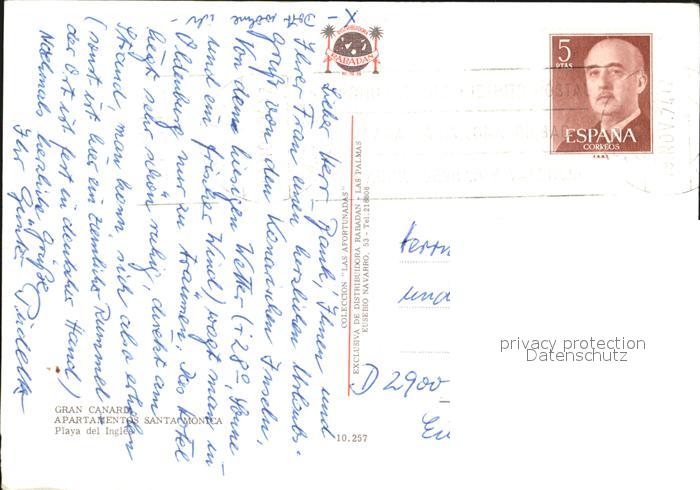 X
Dort wohne ich
Lieber Herr Plank, Ihnen und
Ihrer Frau einen herzlichen Urlaubs-
gruß von den Kanarischen Inseln.
Von dem hiesigen Wetter (+28°, Sonne
und ein frischer Wind) wagt man in
Oldenburg nur zu träumen. Das Hotel
liegt sehr schön ruhig, direkt am
Strand, man kann sich also erholen
(sonst ist hier ein ziemlicher Rummel,
der Ort ist fest in deutscher Hand)
Nochmals herzliche Grüße
Ihr Günter
DISTRIBUIDORA
RABADAN
COLECCION "LAS AFORTUNADAS"
EXCLUSIVA DE DISTRIBUIDORA RABADAN - LAS PALMAS
EUSEBIO NAVARRO, 53 - Tel:
5
PTAS
ESPAÑA
CORREOS
NOV.74
Herrn
und
D 2900
privacy protection
Datenschutz
GRAN CANARIA
APARTAMENTOS SANTA MONICA
Playa del Inglés
10.257